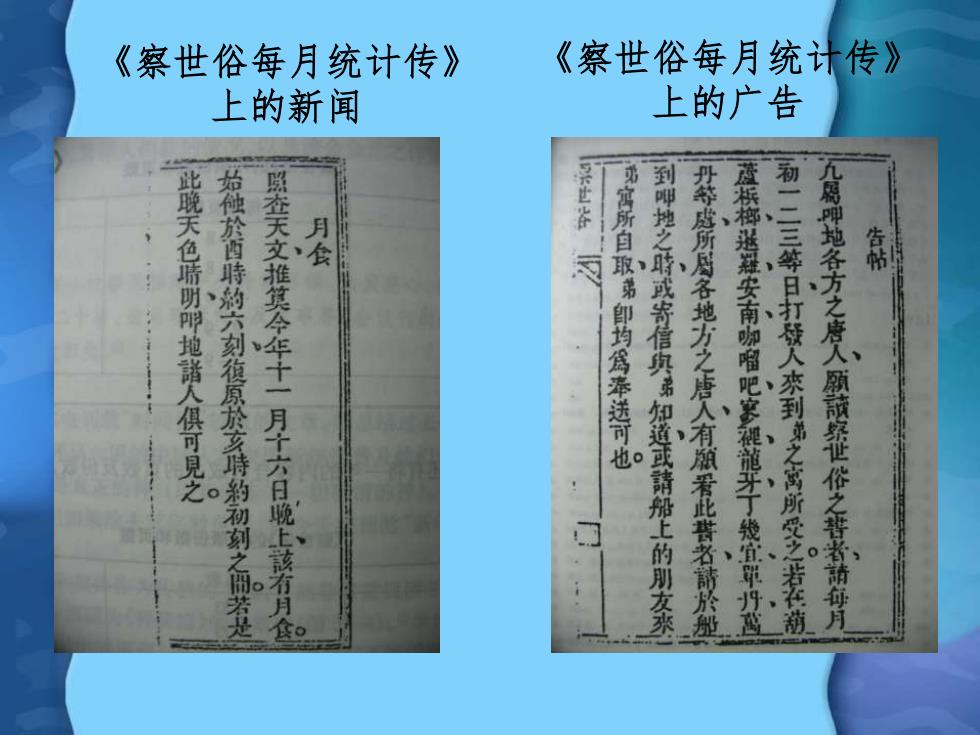 《察世俗每月统计传》
上的新闻
《察世俗每月统计传》
上的广告
月食
照查天文、推算今年十一月十六日晚上、該有月食。
始蝕於酉時約六刻、復原於亥時約初刻之間。若是
此晚天色晴明、呷地諸人俱可見之。
告帖
凡屬呷地各方之唐人、願讀察世俗之書者、請每月
初一二三等日、打發人來到弟之寓所受之。若在葫
蘆檳榔、暹羅、安南、咖𠺕吧、寥裡龍牙、丁幾宜、單丹、萬
丹等處、所屬各地方之唐人、有願看此書者、請於船
到呷地之時、或寄信與弟知道、或請船上的朋友來
弟寓所自取、弟卽均爲奉送可也。
察世俗